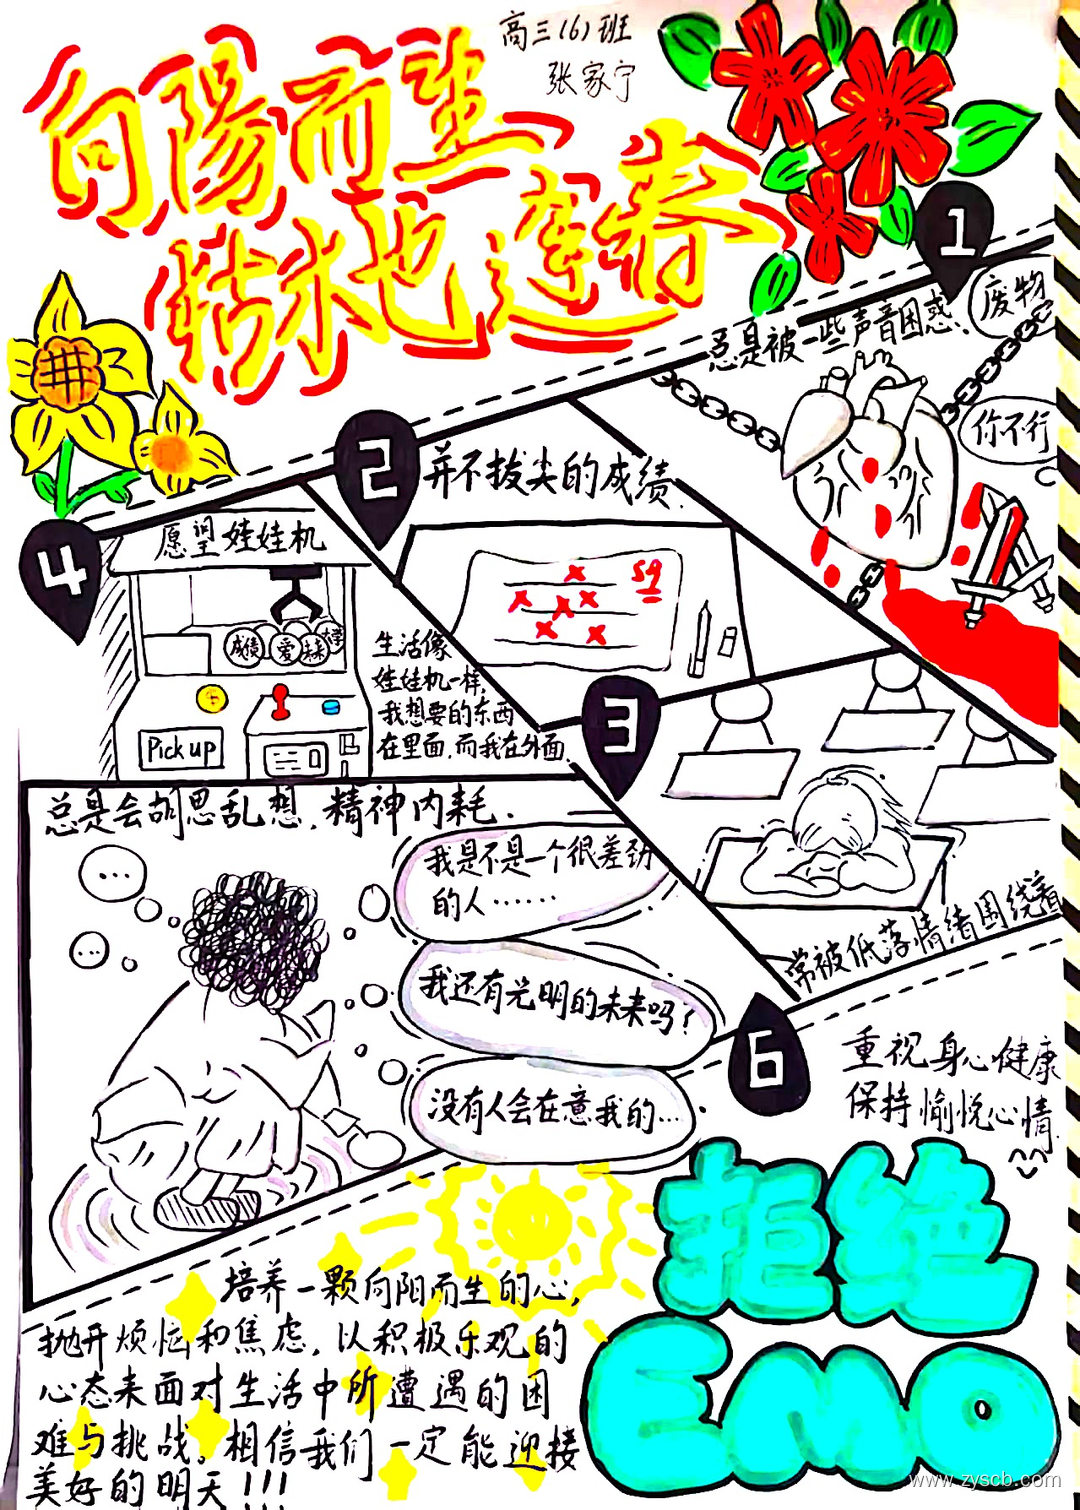 高三(6)班
张家宁
向陽而生
枯木也逢春
1
总是被一些声音困惑.
废物
你不行
2
并不拔尖的成绩.
59
3
常被低落情绪围绕着
4
愿望娃娃机
成绩
爱
未来
Pick up
生活像
娃娃机一样,
我想要的东西
在里面.而我在外面
总是会胡思乱想.精神内耗.
...
...
我是不是一个很差劲
的人······
我还有光明的未来吗?
没有人会在意我的...
6
重视身心健康
保持愉悦心情
拒绝
EMO
培养一颗向阳而生的心,
抛开烦恼和焦虑.以积极乐观的
心态来面对生活中所遭遇的困
难与挑战。相信我们一定能迎接
美好的明天!!!
www.zyscb.com